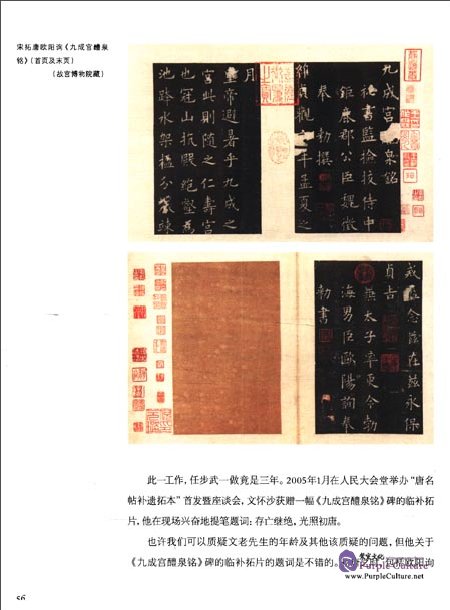 宋拓唐欧阳询《九成宫醴泉
铭》（首页及末页）
（故宫博物院藏）
九成宫醴泉铭
秘书监检校侍中
钜鹿郡公臣魏徵
奉勅撰
维贞观六年孟夏之
月
皇帝避暑乎九成之
宫此则随之仁寿宫
也冠山抗殿绝壑为
池跨水架楹分岩竦
戒盈念兹在兹永保
贞吉
兼太子率更令勃
海男臣欧阳询奉
勅书
此一工作，任步武一做竟是三年。2005年1月在人民大会堂举办“唐名
帖补遗拓本”首发暨座谈会，文怀沙获赠一幅《九成宫醴泉铭》碑的临补拓
片，他在现场兴奋地提笔题词：存亡继绝，光照初唐。
也许我们可以质疑文老先生的年龄及其他该质疑的问题，但他关于
《九成宫醴泉铭》碑的临补拓片的题词是不错的。
包括欧阳询
紫宸文化
Purple Culture
www.PurpleCulture.net
56